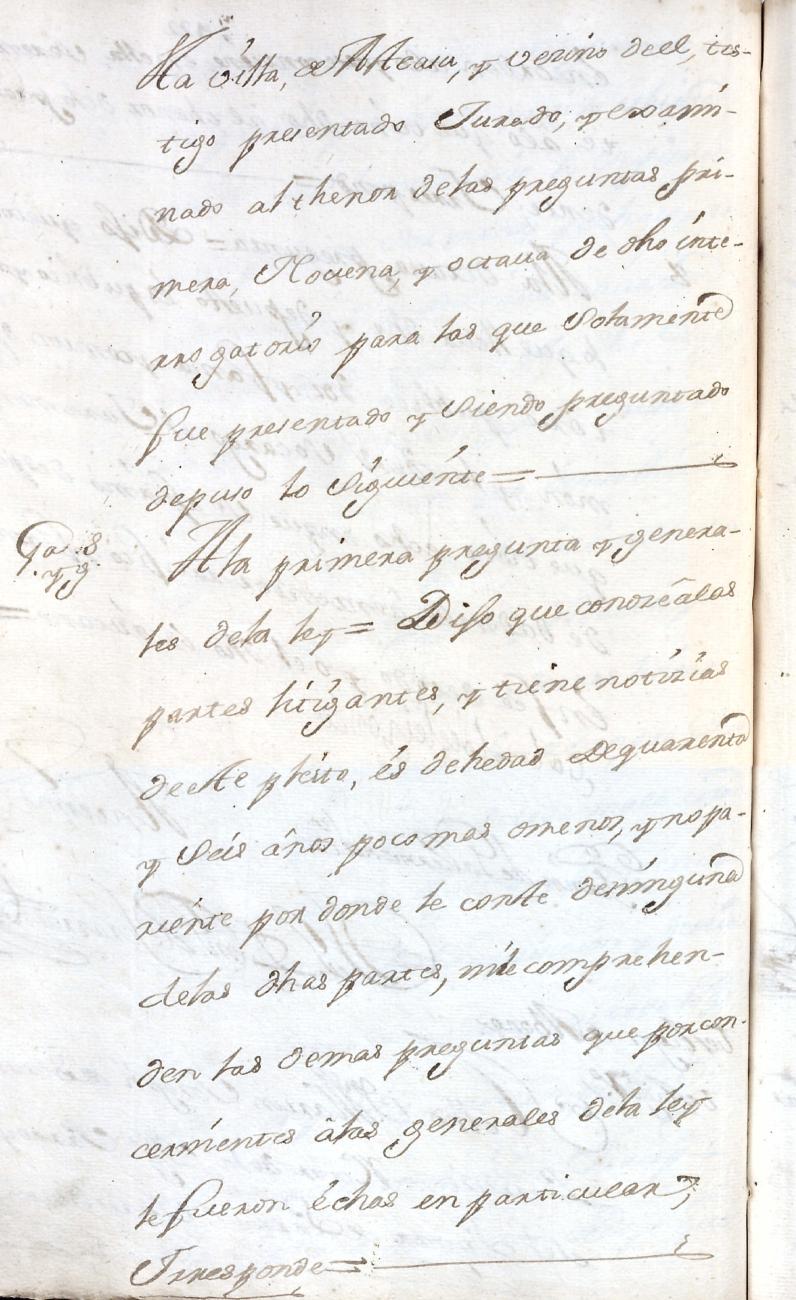 Ha villa, de Arteaia, y vezino deel, tes-
tigo presentado Jurado, y exami-
nado al thenor delas preguntas pri-
mera, Novena, y octava de dho inte-
rrogatorio para las que Solamente
fue presentado y Siendo preguntado
depuso lo Siguiente=
Ala primera pregunta y genera-
les dela ley= Dijo que conoze âlas
partes litigantes, y tiene notizias
deeste pleito, és dehedad dequarenta
y Seis años pocomas omenos, y no pa-
riente por donde le conste deninguna
delas dhas partes, nile comprehen-
den las demas preguntas que porcon-
cernientes âlas generales dela ley
le fueron échas en particular,
Jiresponde=